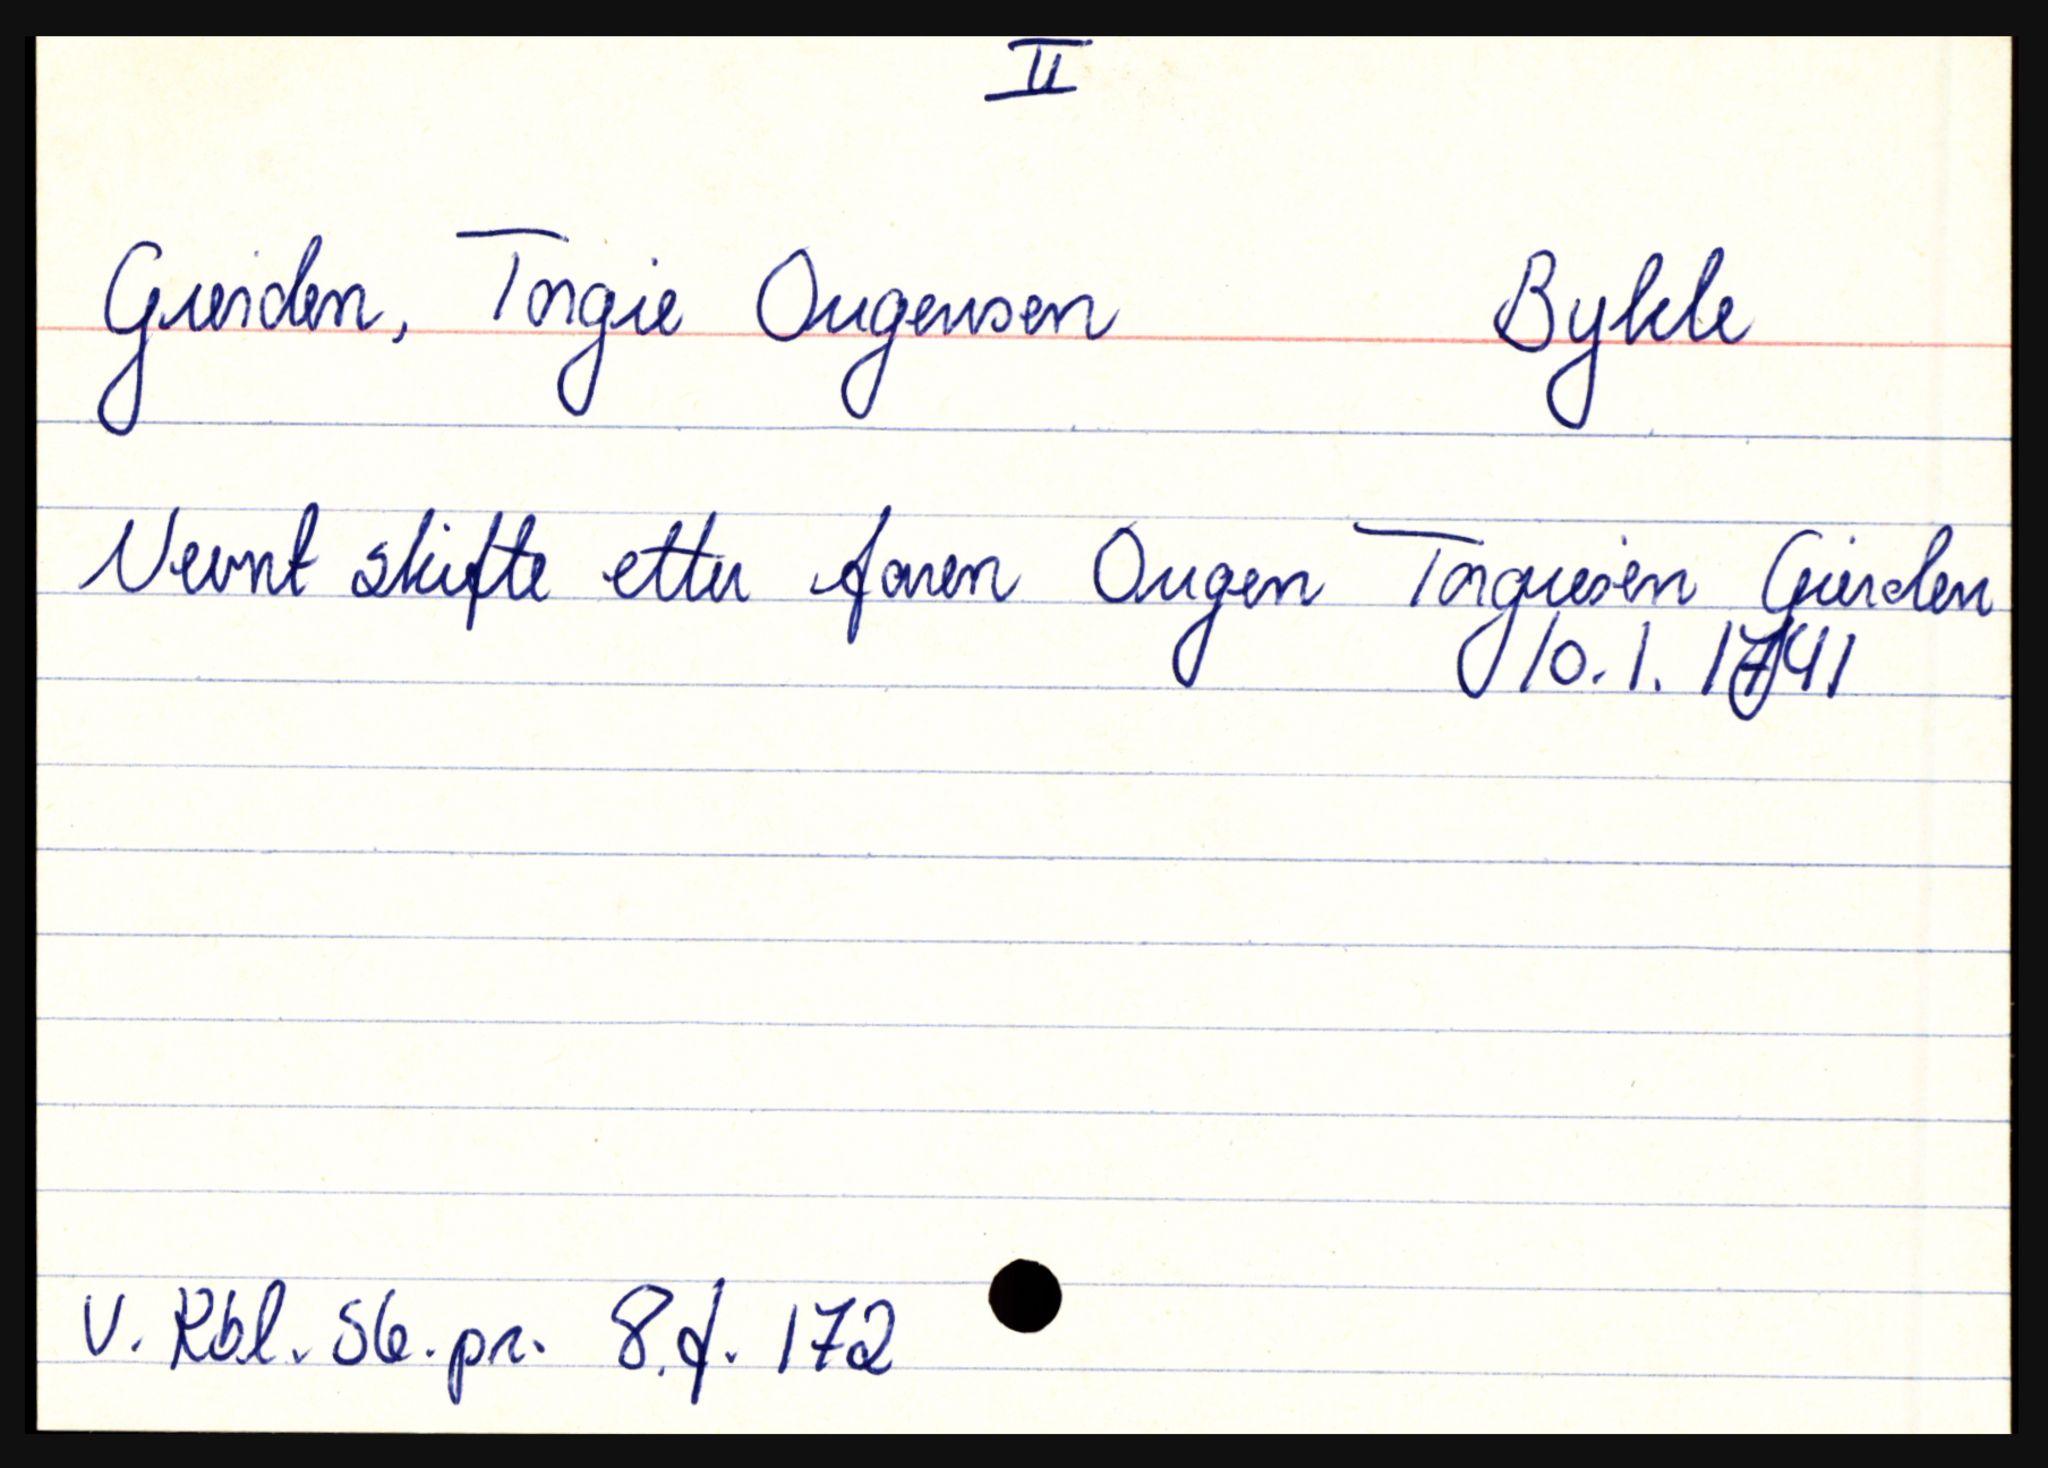 II
Gierden, Torgie Ougensen Bykle
Nevnt skifte etter faren Ougen Torgiesen Gierden
10.1. 1741
V. Rbl. S6. pr. 8.f. 172